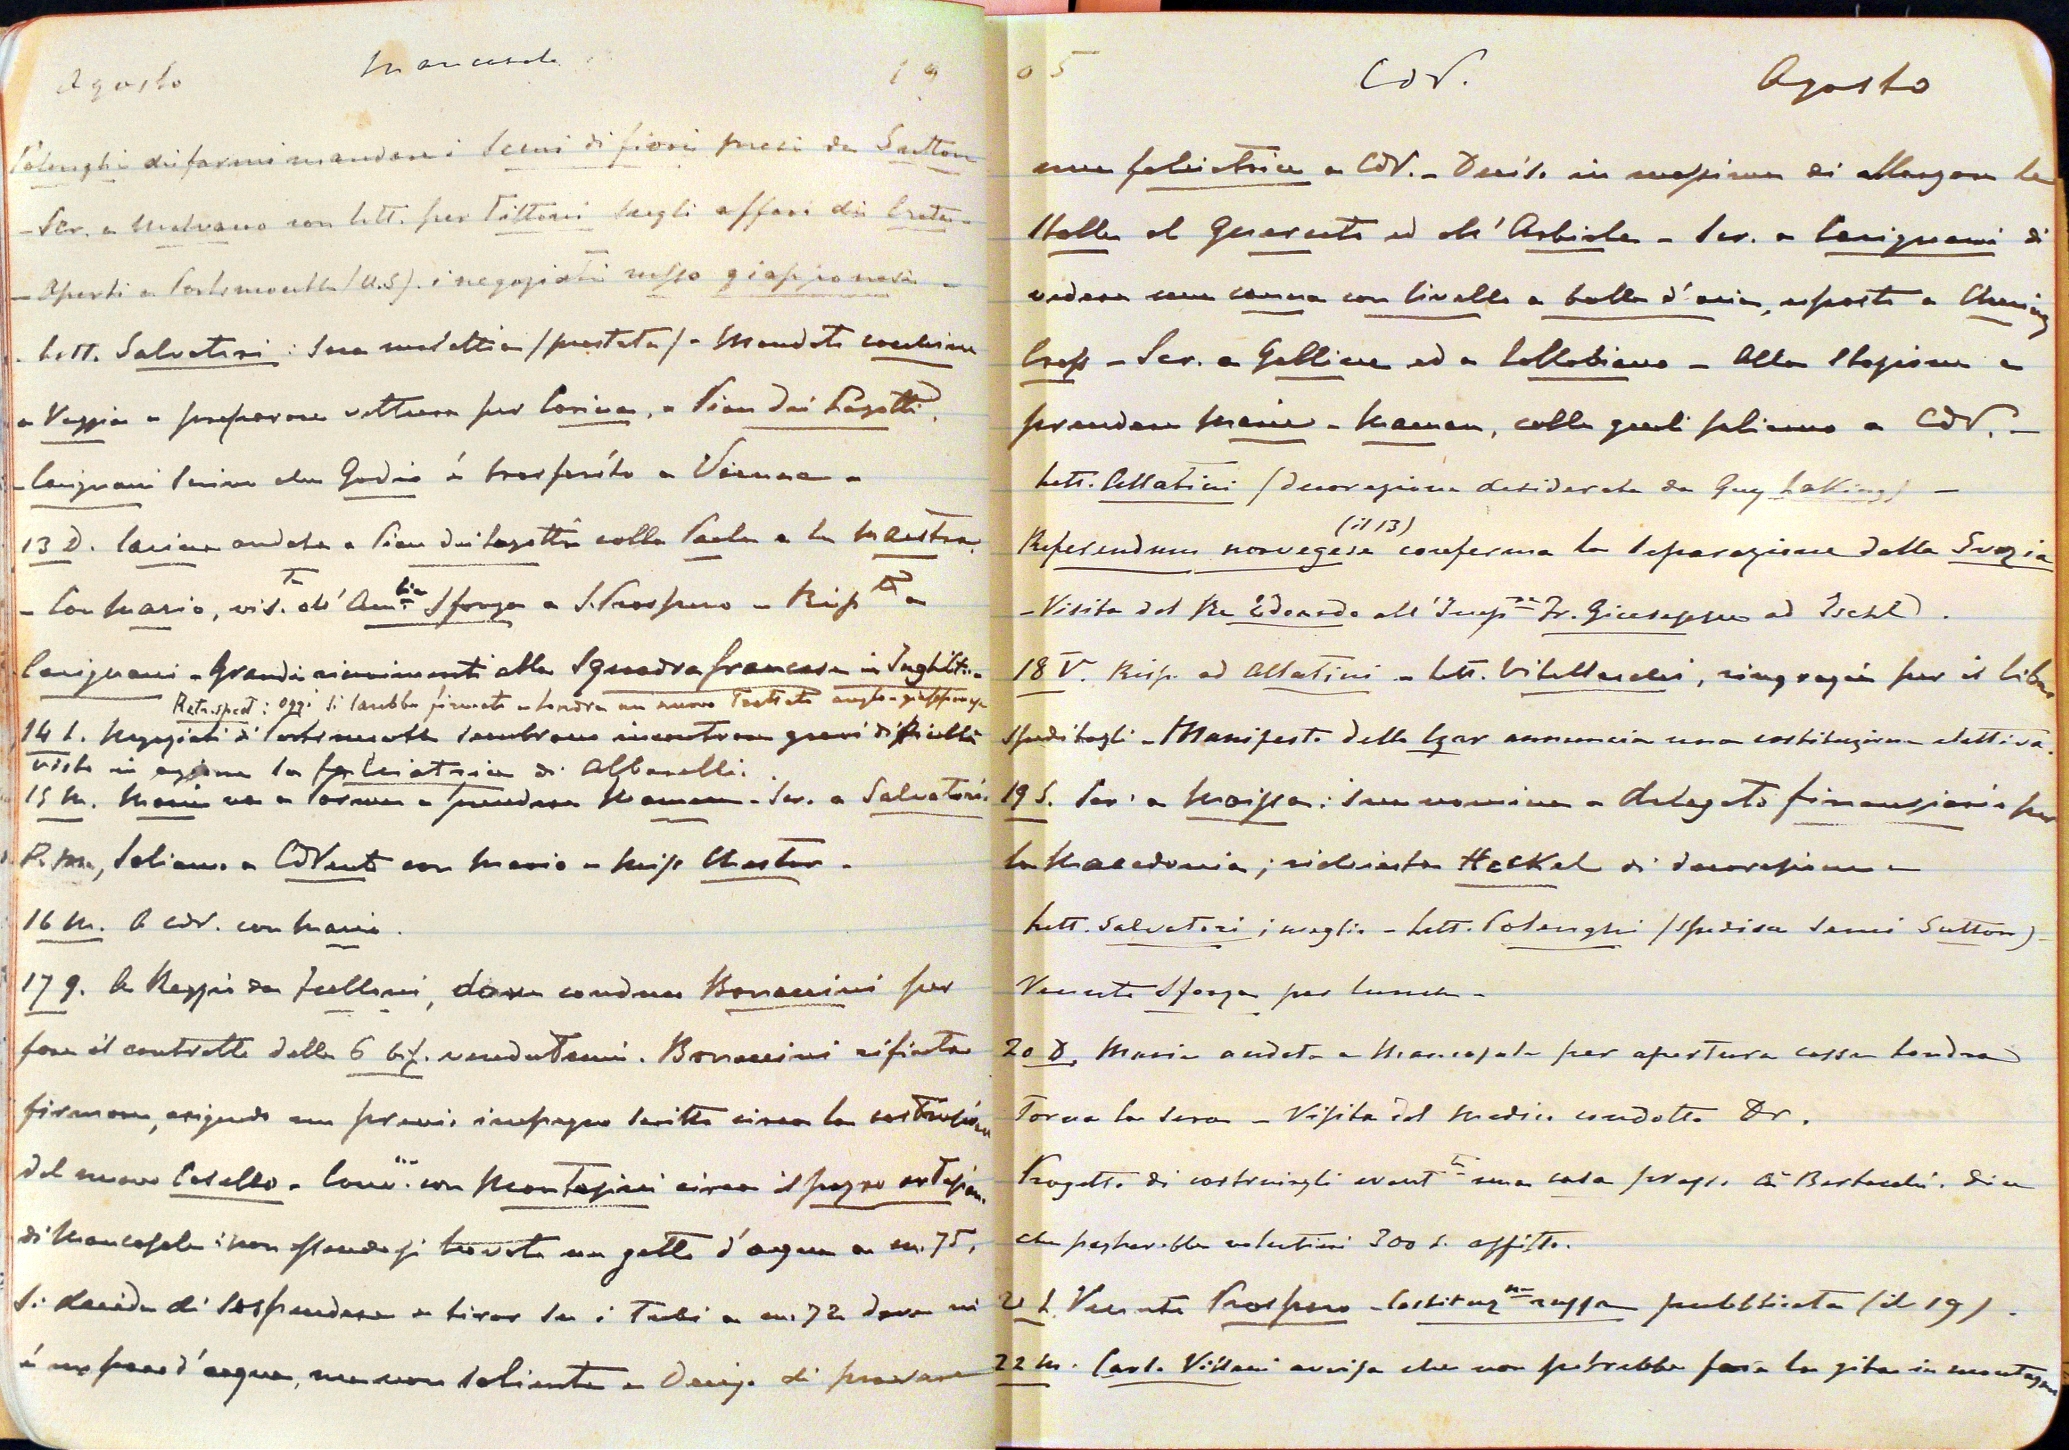 Agosto Mancasale 19
Polenghi di farmi mandare i semi di fiori presi da Sutton
- Scr. a Malvano con lett. per Tittoni sugli affari di Creta -
- Aperti a Portsmouth (U.S). i negoziati russo giapponesi -
- Lett. Salvatori: sua malattia (prostata) - Mandato
a preparare vettura per Corinna, a Pian dei Lagotti.
- Carignani scrive che Godio è trasferito a Vienna -
13 D. Corinna andata a Pian dei Lagotti colla Paola e la maestra.
- Con Mario, vis.ta all' Amb.ta Sforza a S. Prospero - Risp. a
Carignani - Grandi ricevimenti alla squadra francese in Inghilt.a -
Retrospet: oggi si sarebbe firmato a Londra un nuovo Trattato anglo-giapponese
14 L. Negoziati di Portsmouth sembrano incontrare gravi difficoltà
Visto in azione la falciatrice di Albarelli.
15 M. va a Parma a prendere Maman - Scr. a Salvatori.
P.m., saliamo a CdVento con Mario e Miss Chester -
16 M. A CdV. con
17 G. A Reggio da, dove conduco Bonaccini per
fare il contratto delle 6 vendutemi. Bonaccini rifiuta
firmare, esigendo un previo impegno scritto circa la costruzione
del nuovo Casello - Conv. con Montagini circa il pozzo artesiano
di Mancasale: non essendosi trovato un getto d'acqua a m. 75,
si decide di sospendere e tirar su i Tubi a m. 72 dove vi
è un po' d'acqua, ma non saliente - Deciso di provare
05 CdV. Agosto
una falciatrice a CdV. - Deciso in massima di allargare le
stalle al Querceto ed all' - Scr. a Carignani di
vedere una canna con livello a bolla d'aria, esposta a Charing
Cross - Scr. a Gallina ed a Collobiano - Alla stazione a
prendere e Maman, colle quali saliamo a CdV. -
Lett. Allatini (decorazione desiderata da Guy Laking) -
Referendum norvegese (il 13) conferma la separazione dalla Svezia
- Visita del Re Edoardo all' Imp.re Fr. Giuseppe ad Ischl.
18 V. Risp. ad Allatini - Lett. Vitelleschi, ringrazia per il libro
speditogli - Manifesto dello Czar annuncia una costituzione elettiva.
19 S. Scr. a Maissa: sua nomina a delegato finanziario per
la Macedonia; richiesta Heckel di decorazione -
Lett. Salvatori; meglio - Lett. Polenghi (spedisce semi Sutton) -
Venuta Sforza per lunch -
20 D. Maria andata a Mancasale per apertura casse Londra
Torna la sera - Visita del medico condotto Dr.
Progetto di costruirgli event.te una casa presso Cà Bertacchi. Dice
che pagherebbe volentieri 300 L. affitto.
21 L. Venuto Prospero - Costituz.ne russa pubblicata (il 19).
22 M. Carlo Villani avvisa che non potrebbe fare la gita in montagna